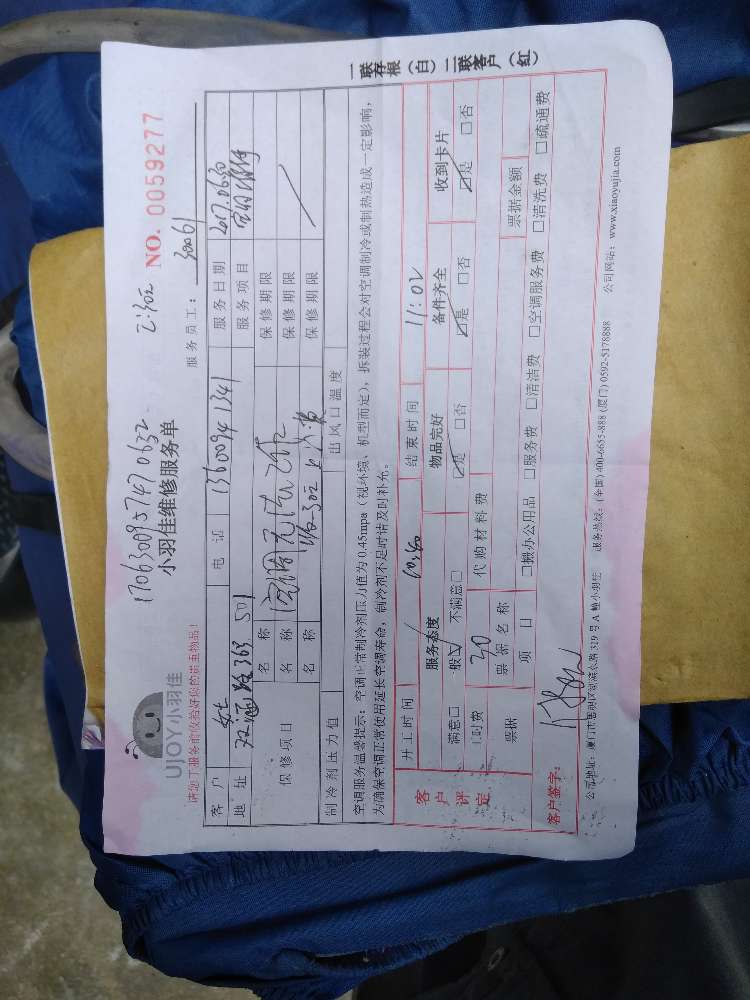 1706300957470632 乙:30元
UJOY小羽佳 小羽佳维修服务单 NO. 0059277
请您于服务前收拾好您的贵重物品! 服务员工: 30061
客户 女士 电话 13600941341 服务日期 2017.06.30
地址 双涵路363 501 服务项目 空调维修
保修项目 名称 保修期限
名称 保修期限
名称 保修期限
制冷剂压力值 出风口温度
空调服务温馨提示:空调正常制冷剂压力值为0.45mpa(视环境、机型而定),拆装过程会对空调制冷或制热造成一定影响,
为确保空调正常使用延长空调寿命,制冷剂不足时请及时补充。
开工时间 10:40 结束时间 11:02
客户评定 服务态度 物品完好 备件齐全 收到卡片
满意□ 一般☑ 不满意□ ☑是 □否 ☑是 □否 ☑是 □否
口时费 30 代购材料费
票据 票据名称 票据金额
项目 □搬办公用品 □服务费 □清洁费 □空调服务费 □清洗费 □疏通费
客户签字:
公司地址:厦门市 319号A幢小羽佳 服务热线:(全国)400-6655-888(厦门)0592-5178888 公司网站:www.xiaoyujia.com
一联存根(白)二联客户(红)